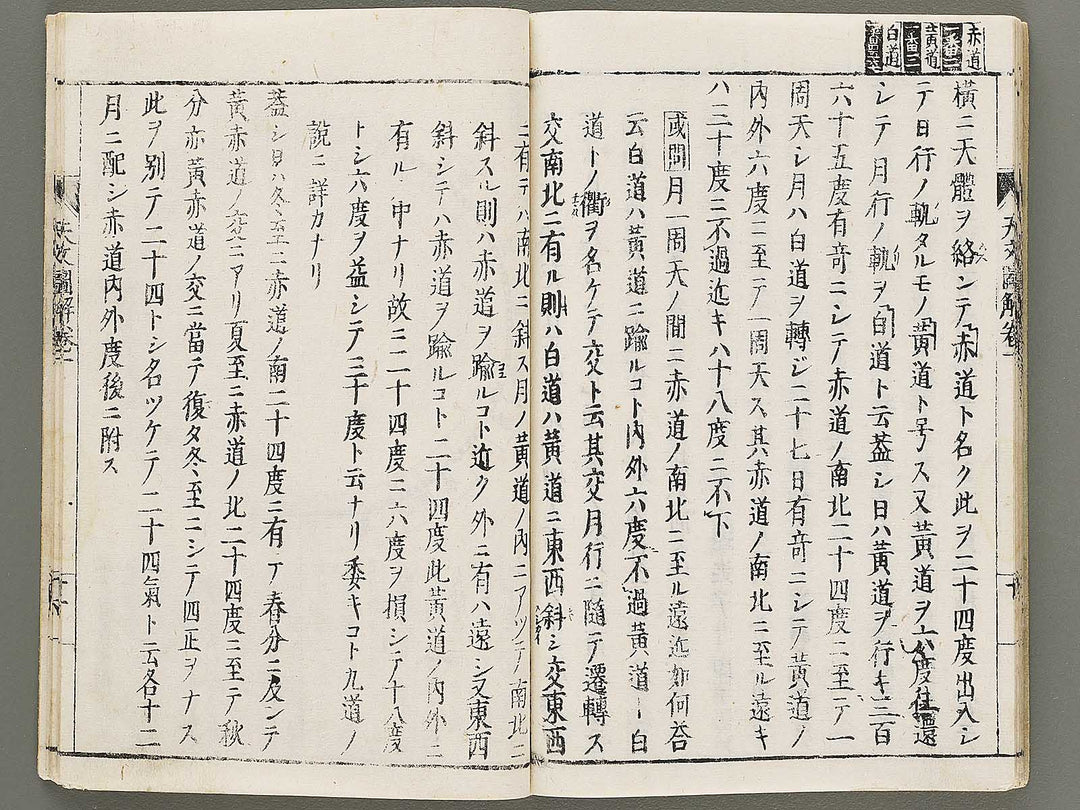 赤道
一番二
黄道
一番三
白道
橫ニ天體ヲ絡ンテ赤道ト名ク此ヲ二十四度出入シ
テ日行ノ軌タルモノ黄道ト号ス又黄道ヲ六度往還
シテ月行ノ軌ヲ白道ト云蓋シ日ハ黄道ヲ行キ三百
六十五度有竒ニシテ赤道ノ南北二十四度ニ至テ一
周天シ月ハ白道ヲ轉ジ二十七日有竒ニシテ黄道ノ
內外六度ニ至テ一周天ス其赤道ノ南北ニ至ル遠キ
ハ三十度ニ不過近キハ十八度ニ不下
或問月一周天ノ間ニ赤道ノ南北ニ至ル遠近如何荅
云白道ハ黄道ニ踰ルコト內外六度不過黄道ト白
道トノ衢ヲ名ケテ交ト云其交月行ニ隨テ遷轉ス
交南北ニ有ル則ハ白道ハ黄道ニ東西斜シ交東西
ニ有テハ南北ニ斜ス月ノ黄道ノ內ニアツテ南北ニ
斜スル則ハ赤道ヲ踰ルコト近ク外ニ有ハ遠シ又東西
斜シテハ赤道ヲ踰ルコト二十四度此黄道ノ內外ニ
有ル中ナリ故ニ二十四度ニ六度ヲ損シテ十八度
トシ六度ヲ益シテ三十度ト云ナリ委キコト九道ノ
說ニ詳カナリ
蓋シ日ハ冬至ニ赤道ノ南二十四度ニ有テ春分ニ及ンテ
黄赤道ノ交ニアリ夏至ニ赤道ノ北二十四度ニ至テ秋
分亦黄赤道ノ交ニ當テ復タ冬至ニシテ四正ヲナス
此ヲ别テ二十四トシ名ツケテ二十四氣ト云各十二
月ニ配シ赤道內外度後ニ附ス
天文圖解卷一
十
天文圖解卷一